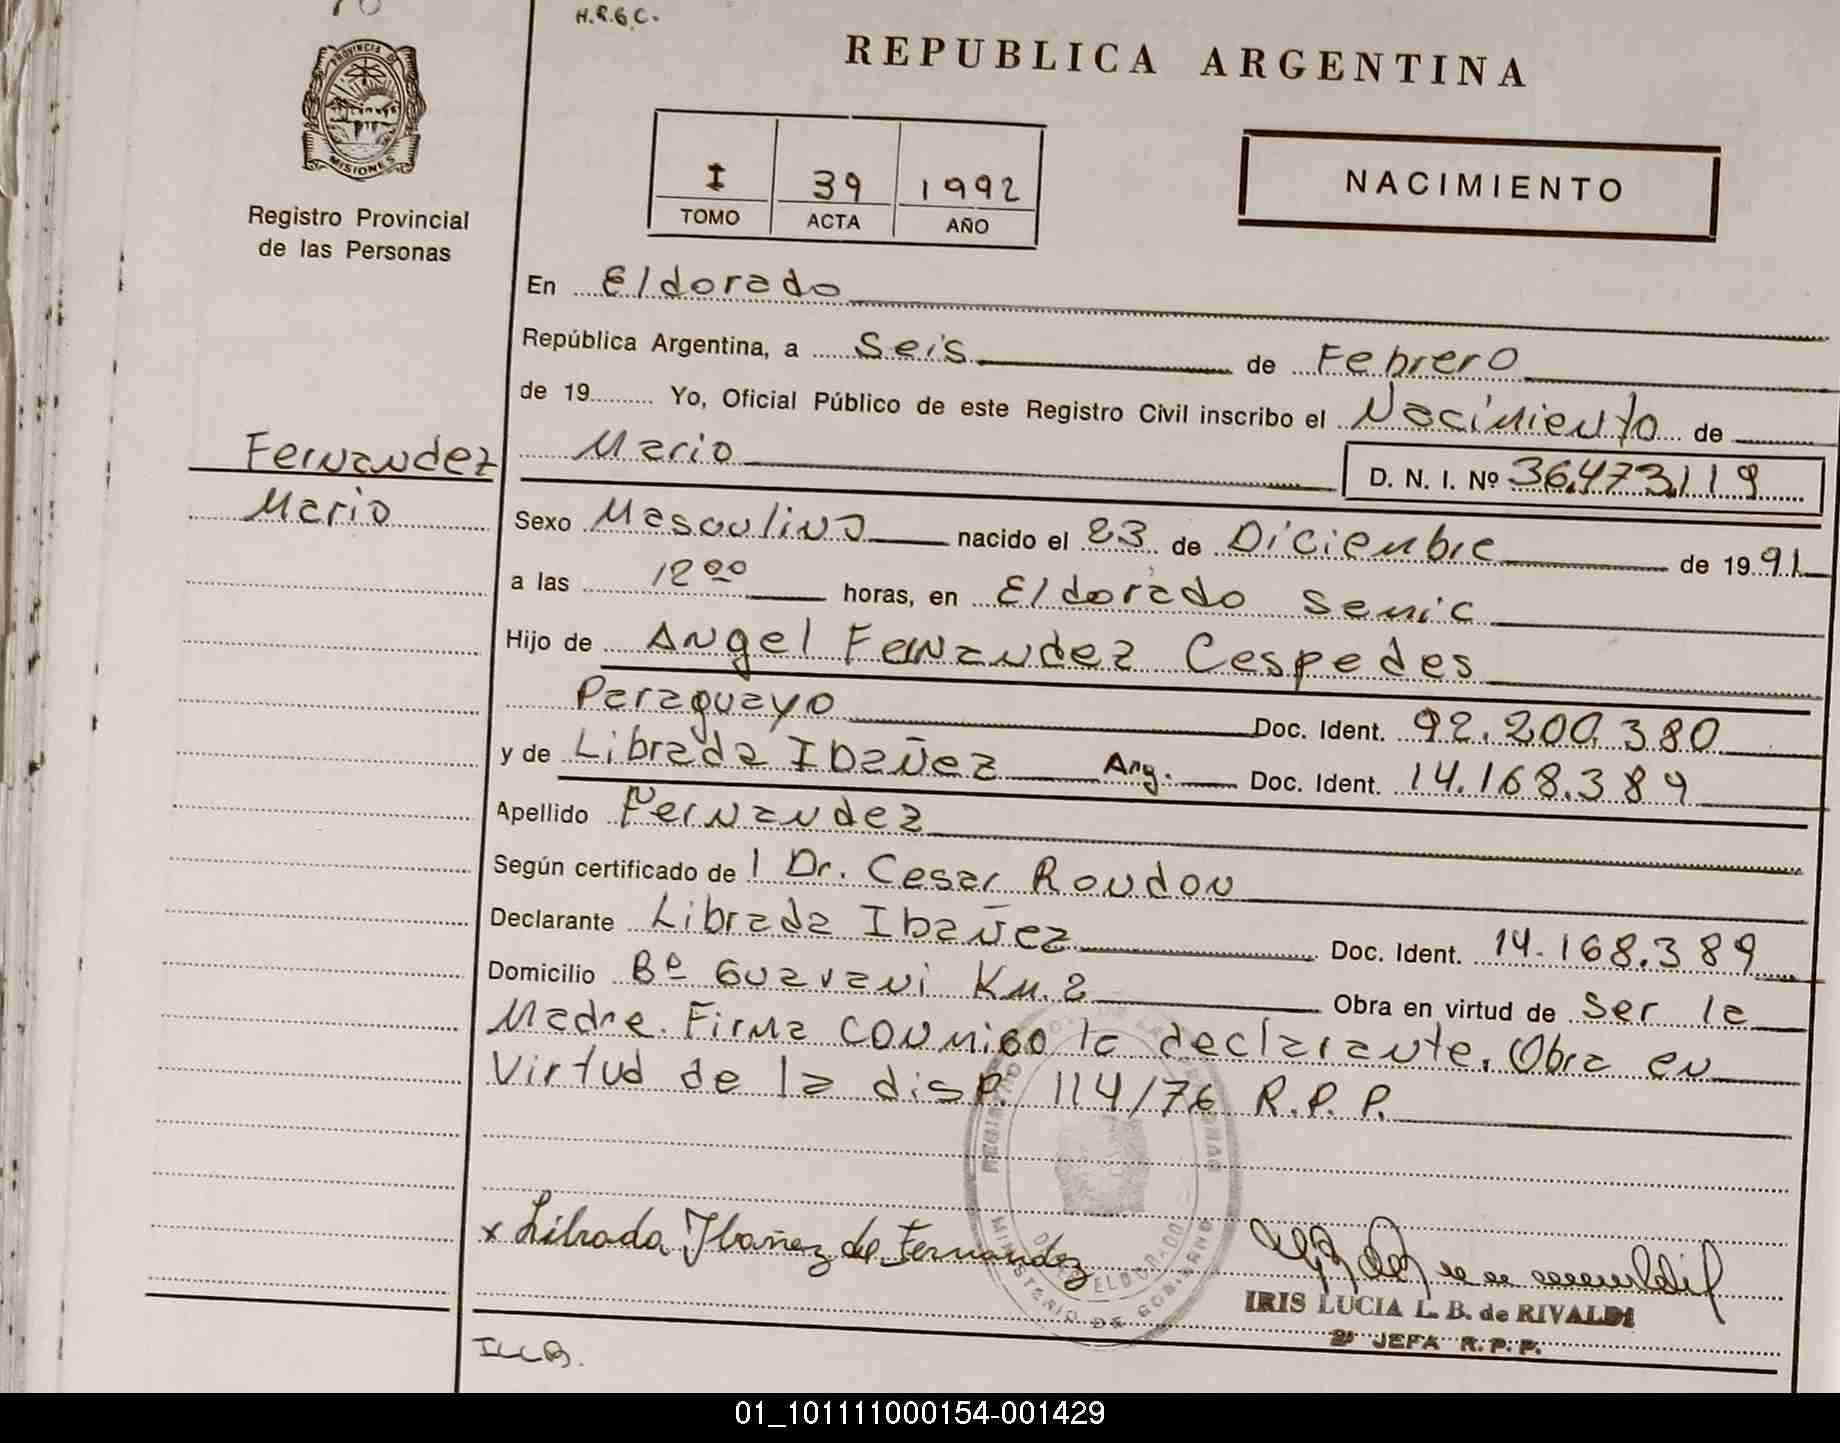 H.R.G.C.
REPUBLICA ARGENTINA
PROVINCIA DE
MISIONES
Registro Provincial
de las Personas
I 39 1992
TOMO ACTA AÑO
NACIMIENTO
En Eldorado
República Argentina, a Seis de Febrero
de 19 Yo, Oficial Público de este Registro Civil inscribo el Nacimiento de
Fernandez Mario D. N. I. Nº 36.473.119
Mario
Sexo Masculino nacido el 23 de Diciembre de 1991
a las 12 00 horas, en Eldorado Semic
Hijo de Angel Fernandez Cespedes
Paraguayo Doc. Ident. 92.200.380
y de Librada Ibañez Arg. Doc. Ident. 14.168.389
Apellido Fernandez
Según certificado de l Dr. Cesar Rondon
Declarante Librada Ibañez Doc. Ident. 14.168.389
Domicilio Bº Guarani Km. 2 Obra en virtud de ser la
Madre. Firma conmigo la declarante. Obra en
Virtud de la disp. 114/76 R.P.P.
x Librada Ibañez de Fernandez
MINISTERIO DE GOBIERNO
ELDORADO
IRIS LUCIA L. B. de RIVALDI
2ª JEFA R.P.P.
01_101111000154-001429